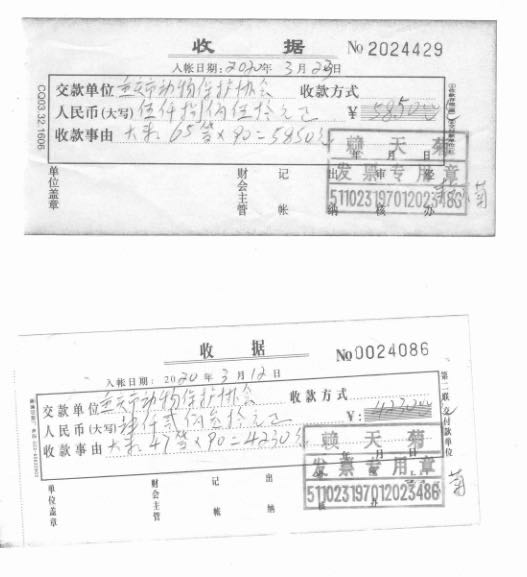 收 据
No 2024429
入帐日期：2020年 3 月 23日
交款单位 重庆市动物保护协会 收款方式
人民币(大写) 伍仟捌佰伍拾元正 ￥ 5850元
收款事由 大米：65 袋×90=5850元
年 月 日
赖 天 菊
发票专用章
511023197012023486
单位盖章
财会主管
记帐
出纳
审核
经办
菊
CQ03.32.1606
收 据
No 0024086
入帐日期：2020 年 3 月 12 日
交款单位 重庆市动物保护协会 收款方式
人民币(大写) 肆仟贰佰叁拾元正 ￥：4230元
收款事由 大米：47袋×90=4230元
年 月 日
赖 天 菊
发票专用章
511023197012023486
单位盖章
财会主管
记帐
出纳
核
办
菊
第二联 交付款单位